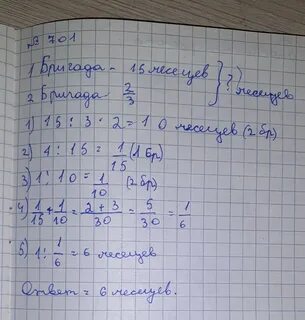 № 701
1 Бригада - 15 месецев } ?
2 Бригада - 2/3 } месецев
1) 15 : 3 · 2 = 10 месецев (2 бр)
2) 1 : 15 = 1/15 (1 бр)
3) 1 : 10 = 1/10 (2 бр)
4) 1/15 + 1/10 = 2 + 3/30 = 5/30 = 1/6
5) 1 : 1/6 = 6 месецев
Ответ = 6 месецев.